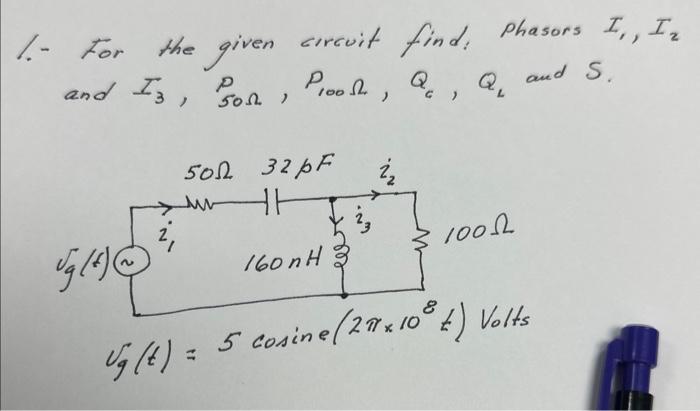 1.- For the given circuit find: Phasors I₁, I₂
and I₃, P₅₀Ω, P₁₀₀Ω, Q_c, Q_L and S.
50Ω 32pF i₂
i₁ i₃ 100Ω
v_g(t) ~ 160nH
v_g(t) = 5 cosine(2π×10⁸ t) Volts